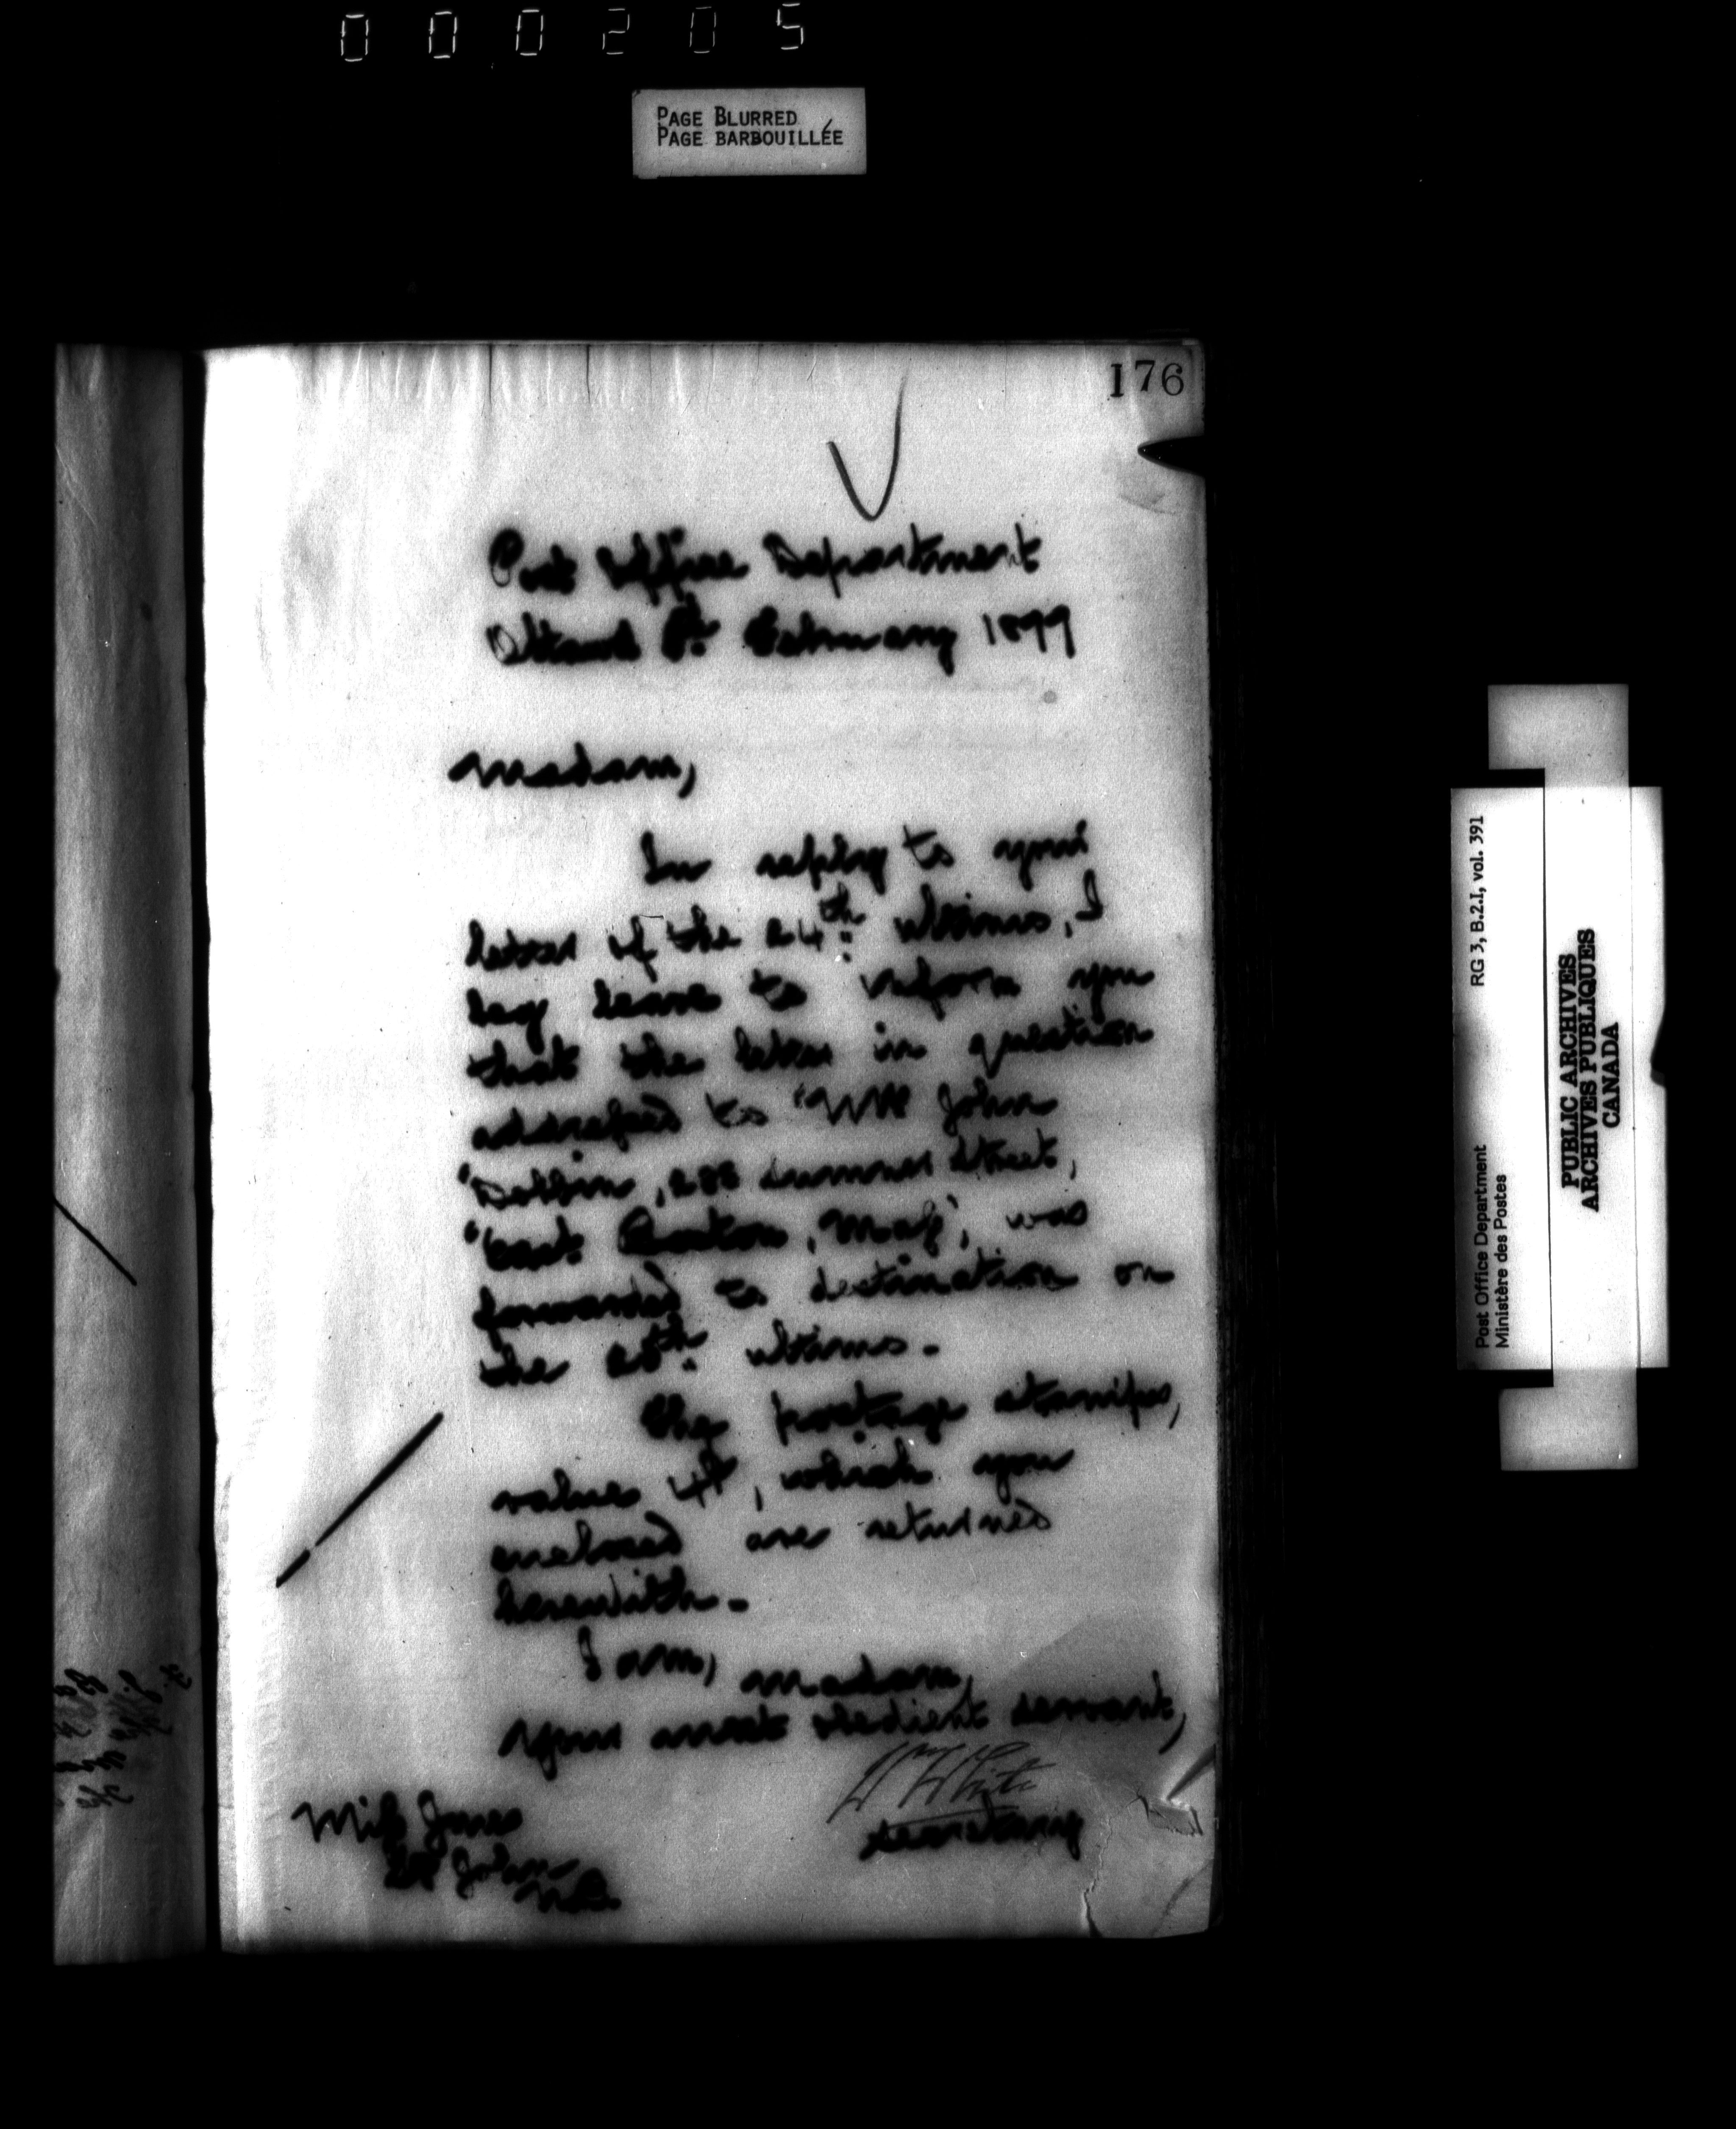 000205
PAGE BLURRED
PAGE BARBOUILLÉE
176
Post Office Department
Ottawa February 1899
Madam,
In reply to your
letter of the 24th ultimo, I
beg leave to inform you
that the letter in question
addressed to "Mr John
"Dobbin, 288 Sumner Street,
"East Boston, Mass", was
forwarded to destination on
the ultimo.
The postage stamps,
value 4¢, which you
enclosed are returned
herewith.
I am, Madam,
Your most obedient servant,
Wm White
Secretary
Miss Jones
St John
N.B.
RG 3, B.2.I, vol. 391
Post Office Department
Ministère des Postes
PUBLIC ARCHIVES
ARCHIVES PUBLIQUES
CANADA